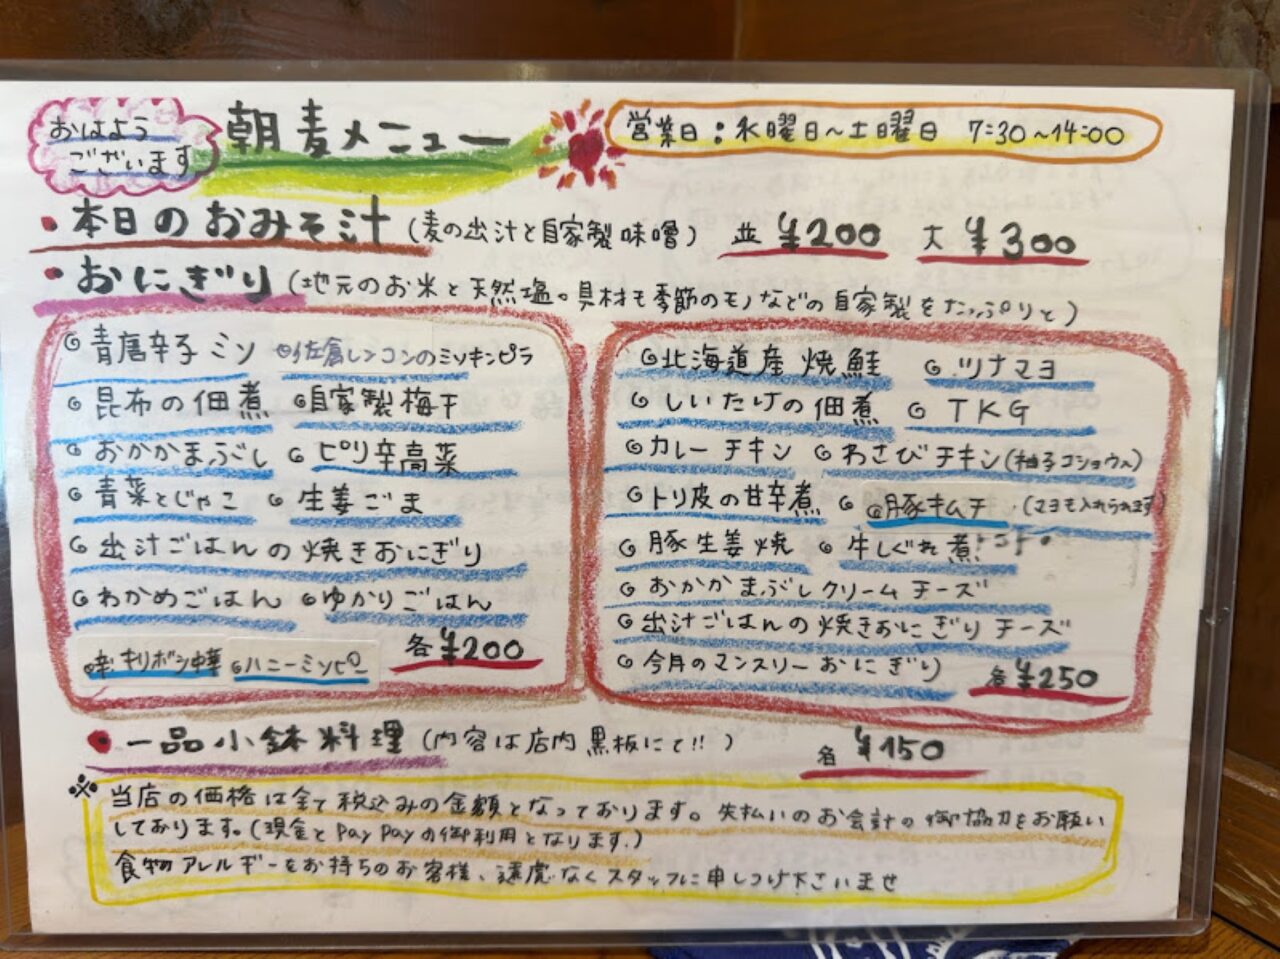 おはよう
ございます
朝麦メニュー
営業日：水曜日～土曜日 7:30～14:00
・本日のおみそ汁（麦の出汁と自家製味噌） 並 ¥200 大 ¥300
・おにぎり（地元のお米と天然塩。具材も季節のモノなどの自家製をたっぷりと）
◎青唐辛子ミソ ◎佐倉レンコンのミソキンピラ
◎昆布の佃煮 ◎自家製梅干
◎おかかまぶし ◎ピリ辛高菜
◎青菜とじゃこ ◎生姜ごま
◎出汁ごはんの焼きおにぎり
◎わかめごはん ◎ゆかりごはん
◎辛キリボシ中華 ◎ハニーミソピー
各¥200
◎北海道産焼鮭 ◎ツナマヨ
◎しいたけの佃煮 ◎TKG
◎カレーチキン ◎わさびチキン（柚子コショウ入）
◎トリ皮の甘辛煮 ◎豚キムチ（マヨも入れられます）
◎豚生姜焼 ◎牛しぐれ煮
◎おかかまぶしクリームチーズ
◎出汁ごはんの焼きおにぎりチーズ
◎今月のマンスリーおにぎり
各¥250
・一品小鉢料理（内容は店内黒板にて!!） 各 ¥150
※当店の価格は全て税込みの金額となっております。先払いのお会計の御協力をお願い
しております。（現金とPayPayの御利用となります。）
食物アレルギーをお持ちのお客様、遠慮なくスタッフに申しつけ下さいませ